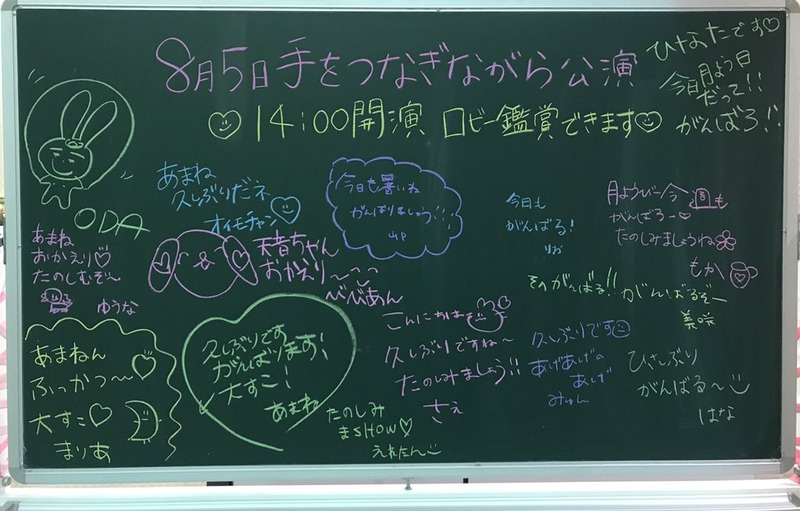 8月5日手をつなぎながら公演
♡14:00開演 ロビー鑑賞できます♡
ひなたです♡
今日月よう日
だって!!
がんばろ!!
ODA
あまね
久しぶりだネ
オイモチャン
今日も暑いね
がんばりましょう!!!
今日も
がんばる!
りお
月ようびー今週も
がんばろー♡
たのしみましょうね
もか
あまね
おかえり♡
たのしむぞ〜
ゆうな
天音ちゃん
おかえり〜
びびあん
あまねん
ふっかつ〜♡
大すこ♡
まりあ
久しぶりです
がんばります!
大すこ!
あまね
たのしみ
まSHOW♡
えれたん
こんにちは
久しぶりですね〜
たのしみましょう!!
さえ
久しぶりです
あげあげの
あげ
みゅん
そのがんばる!!
がんばるぞー
美咲
ひさしぶり
がんばる〜
はな